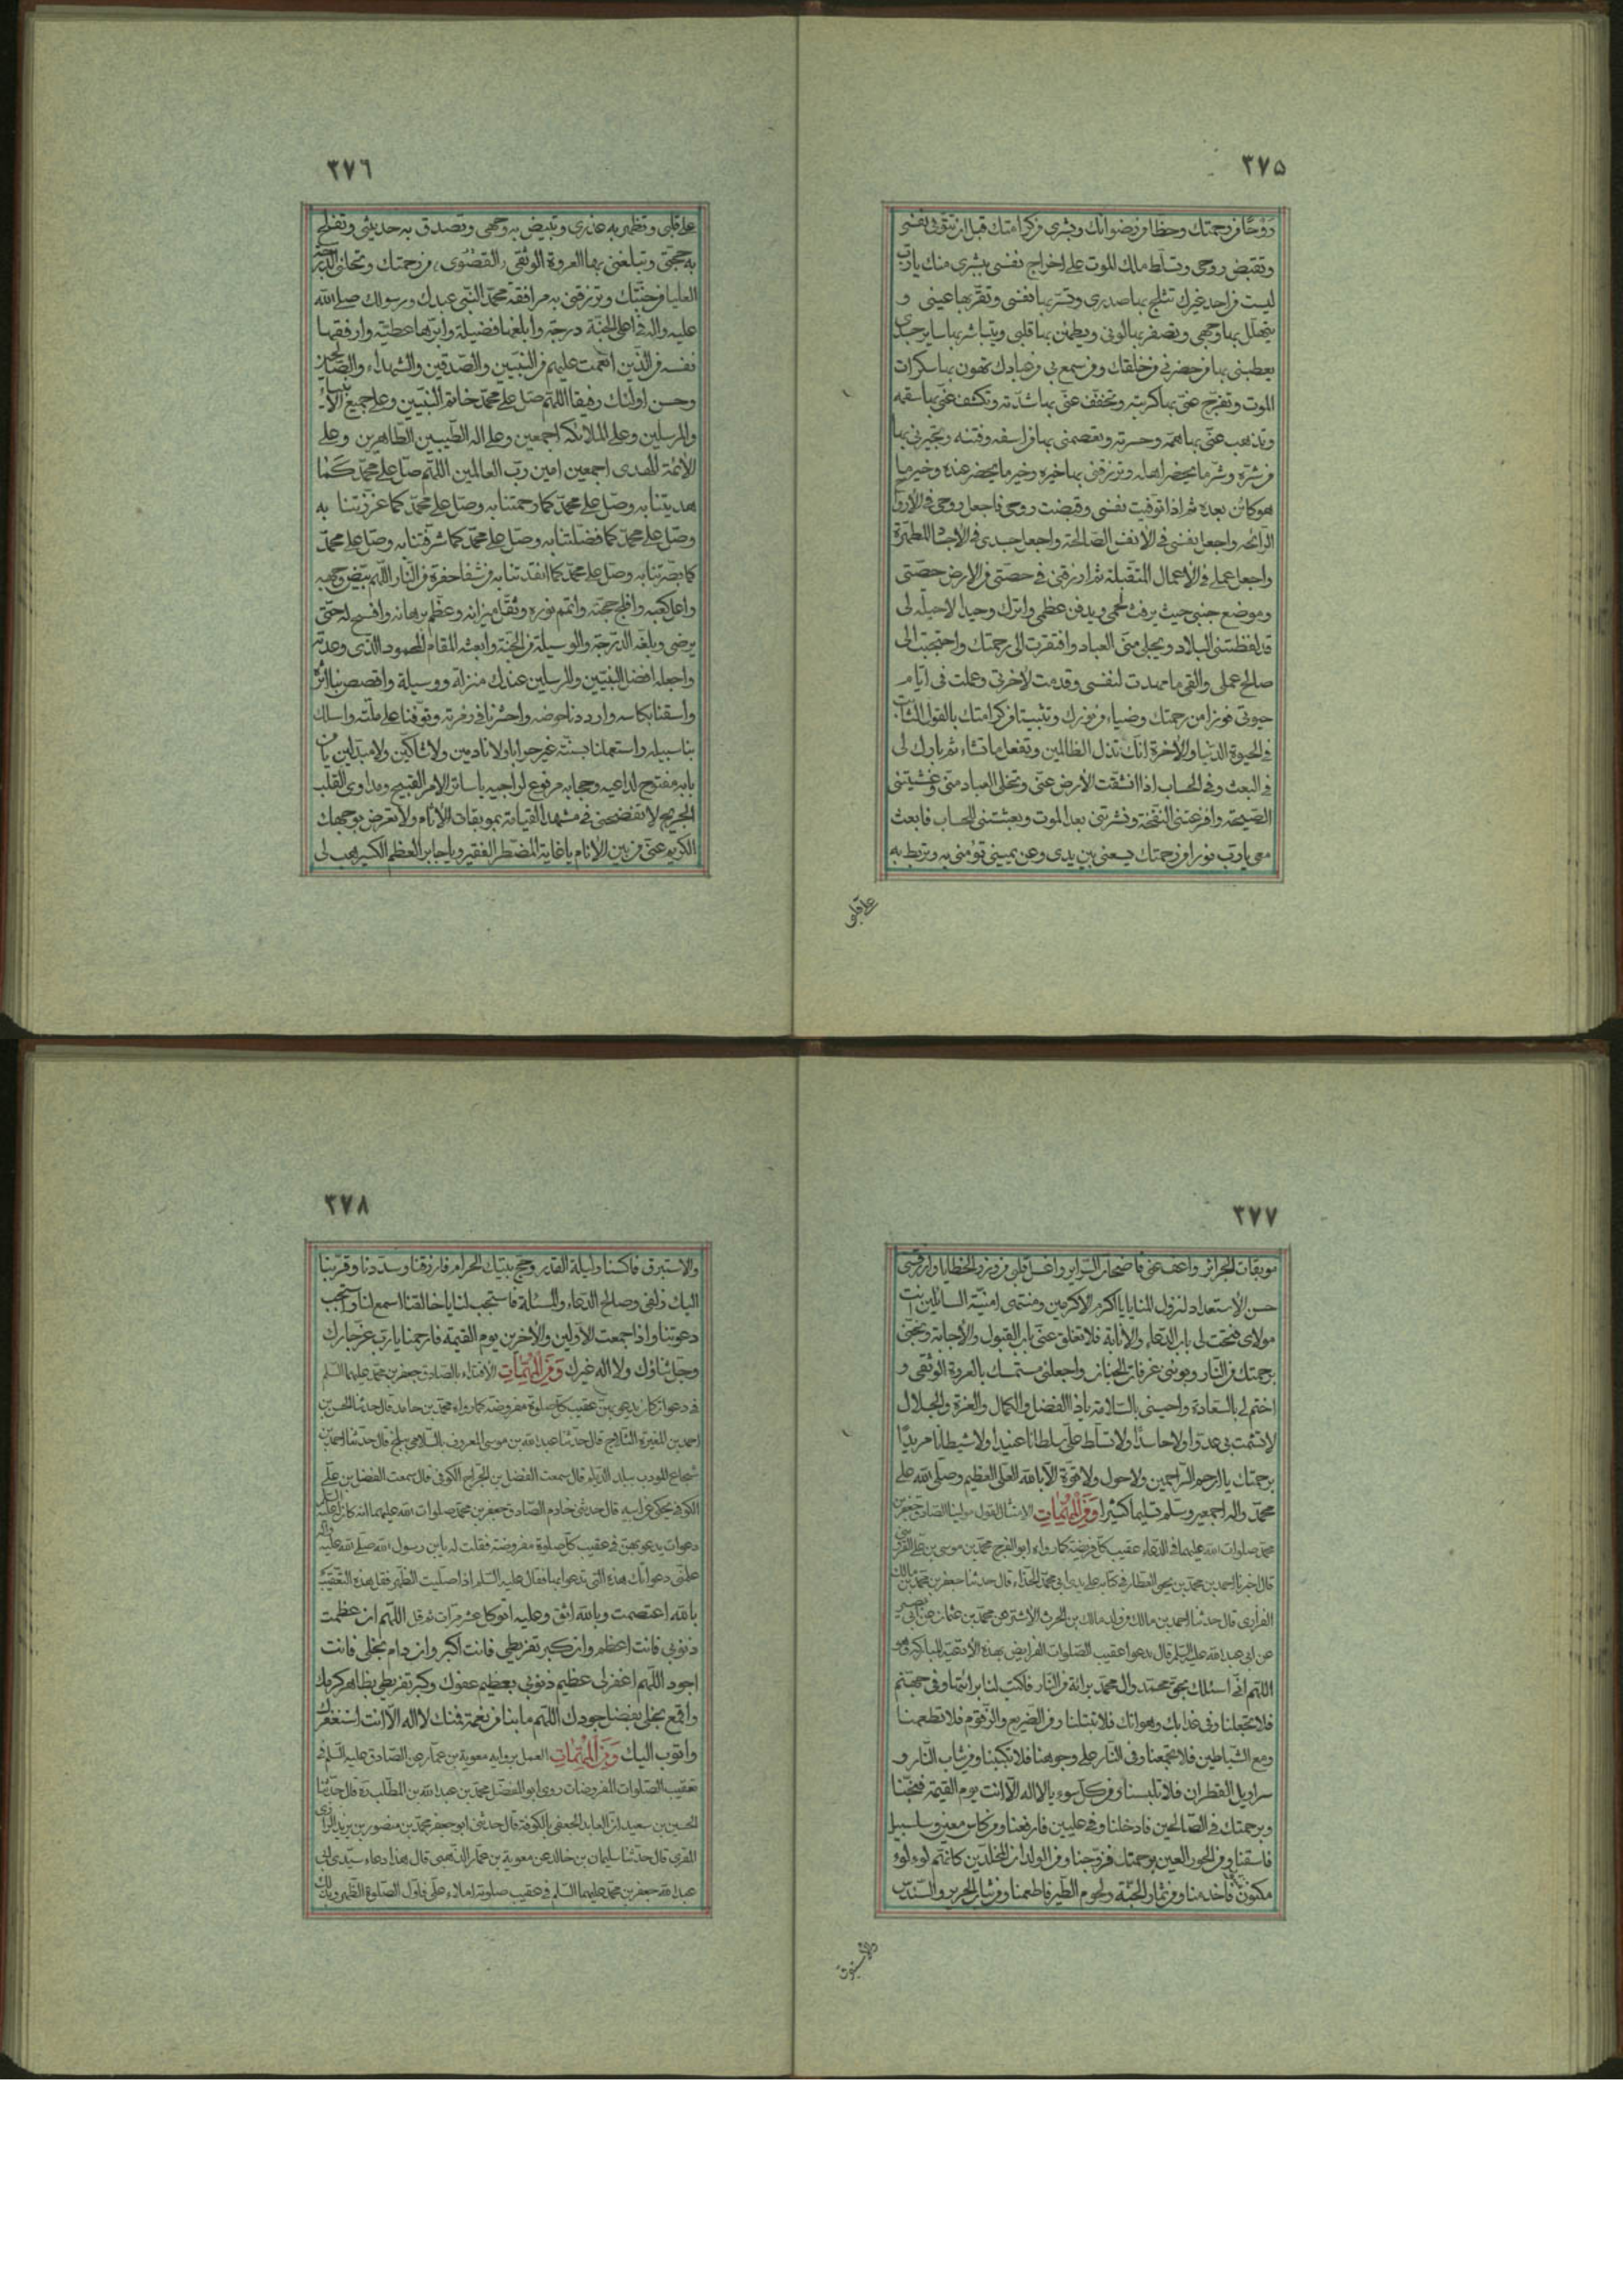 ٣٧۵
رَوْحًا من رحمتك وحظا من رضوانك وبشرى من كرامتك قبل ان تتوفى نفسى
وتقبض روحى وتسلط ملك الموت على اخراج نفسى ببشرى منك يا رب
ليست من احد غيرك تثلج بها صدرى وتسر بها نفسى وتقر بها عينى و
يتهلل بها وجهى ويصفر بها لونى ويطمئن بها قلبى ويتباشر بها ساير جسدى
يغبطنى بها من حضرنى من خلقك ومن سمع بى من عبادك تهون بها سكرات
الموت وتفرج عنى بها كربته وتخفف عنى بها شدته وتكشف عنى بها سقمه
وتذهب عنى بها همه وحسرته وتعصمنى بها من اسفه وفتنه وتجيرنى بها
من شره وشر ما يحضر اهله وترزقنى بها خيره وخير ما يحضر عنده وخير ما
هو كائن بعده ثم اذا توفيت نفسى وقبضت روحى فاجعل روحى فى الأرواح
الرائحه واجعل نفسى فى الأنفس الصالحة واجعل جسدى فى الأجساد المطهرة
واجعل عملى فى الأعمال المتقبلة ثم ارزقنى فى حصتى من الارض حصتى
وموضع جنبى حيث يرفت لحمى ويدفن عظمى واترك وحيدا لا حيلة لى
قد لفظتنى البلاد وتخلى منى العباد وافتقرت الى رحمتك واحتجبت الى
صالح عملى والقى ما مهدت لنفسى وقدمت لأخرتى وعملت فى ايام
حيوتى فوزا من رحمتك وضياء من نورك وتثبيتا من كرامتك بالقول الثابت
فى الحيوة الدنيا والأخرة انك تذل الظالمين وتفعل ما تشاء ثم بارك لى
فى البعث وفى الحساب اذا انشقت الأرض عنى وتخلى العباد منى وغشيتنى
الصيحة وافزعتنى النفخة ونشرتنى بعد الموت وبعثتنى للحساب فابعث
معى يا رب نورا من رحمتك يسعى بين يدى وعن يمينى تؤمنى به وتربط به
على قلبى
٣٧٦
على قلبى وتظهر به عذرى وتبيض به وجهى وتصدق به حديثى وتفلج
به حجتى وتبلغنى بها العروة الوثقى القصوى من رحمتك وتحلنى الدرجة
العليا من جنتك وترزقنى به مرافقة محمد النبى عبدك ورسولك صلى الله
عليه واله فى اعلى الجنة درجة وابلغها فضيلة وابرها عطية وارفقها
نفسه من الذين انعمت عليهم من النبيين والصديقين والشهداء والصالحين
وحسن اولئك رفيقا اللهم صل على محمد خاتم النبيين وعلى جميع الأنبياء
والمرسلين وعلى الملائكة اجمعين وعلى اله الطيبين الطاهرين وعلى
الأئمة الهدى اجمعين امين رب العالمين اللهم صل على محمد كما
هديتنا به وصل على محمد كما رحمتنا به وصل على محمد كما عززتنا به
وصل على محمد كما فضلتنا به وصل على محمد كما شرفتنا به وصل على محمد
كما بصرتنا به وصل على محمد كما انقذتنا به من شفا حفرة من النار اللهم بيض وجهه
واعل كعبه وافلج حجته واتمم نوره وثقل ميزانه وعظم برهانه وافسح له حتى
يرضى وبلغه الدرجة والوسيلة من الجنة وابعثه المقام المحمود الذى وعدته
واجعله افضل النبيين والمرسلين عندك منزلة ووسيلة واقصص بنا اثره
واسقنا بكاسه واوردنا حوضه واحشرنا فى زمرته وتوفنا على ملته واسلك
بنا سبيله واستعملنا بسنته غير خزايا ولا نادمين ولا شاكين ولا مبدلين يا من
بابه مفتوح لداعيه وحجابه مرفوع لراجيه يا ساتر الامر القبيح ومداوى القلب
الجريح لا تفضحنى فى مشهد القيامة بموبقات الأثام ولا تعرض بوجهك
الكريم عنى من بين الأنام يا غاية المضطر الفقير ويا جابر العظم الكسير هب لى
٣٧٧
موبقات الجرائر واعف عنى فاضحات السراير واغسل قلبى من وزر الخطايا وارزقنى
حسن الأستعداد لنزول المنايا يا اكرم الاكرمين ومنتهى امنية السائلين انت
مولاى فتحت لى باب الدعاء والانابة فلا تغلق عنى باب القبول والأجابة ونجنى
برحمتك من النار وبوئنى غرفات الجنان واجعلنى مستمسك بالعروة الوثقى و
اختم لى بالسعادة واحينى بالسلامة يا ذا الفضل والكمال والعزة والجلال
لا تشمت بى عدوا ولا حاسدا ولا تسلط على سلطانا عنيدا ولا شيطانا مريدا
برحمتك يا ارحم الراحمين ولا حول ولا قوة الا بالله العلى العظيم وصلى الله على
محمد واله اجمعين وسلم تسليما كثيرا وَمِنَ الْمُهِمَّاتِ الامتثال لقول مولينا الصادق جعفر بن
محمد صلوات الله عليهما فى الدعاء عقيب كل فريضة كما رواه ابو الفرج محمد بن موسى بن على القزوينى
قال اخبرنا احمد بن محمد بن يحيى العطار فى كتابه على يدى ابى محمد الحذاء قال حدثنا جعفر بن محمد بن مالك
الفزارى قال حدثنا احمد بن مالك من ولد مالك بن الحرث الأشتر عن محمد بن عثمان عن ابى بصير
عن ابى عبد الله عليه السلم قال تدعوا عقيب الصلوات الفرايض بهذه الأدعية المباركة وهو
اللهم انى اسئلك بحق محمد وال محمد برائة من النار فاكتب لنا برائتنا وفى جهنم
فلا تجعلنا وفى عذابك وهوانك فلا تبتلنا ومن الضريع والزقوم فلا تطعمنا
ومع الشياطين فلا تجمعنا وفى النار على وجوهنا فلا تكببنا ومن ثياب النار و
سرابيل القطران فلا تلبسنا ومن كل سوء يا لا اله الا انت يوم القيمة فنجنا
وبرحمتك فى الصالحين فادخلنا وفى عليين فارفعنا ومن كاس معين وسلسبيل
فاسقنا ومن الحور العين برحمتك فزوجنا ومن الولدان المخلدين كانهم لؤلؤ
مكنون فاخدمنا ومن ثمار الجنة ولحوم الطير فاطعمنا ومن ثياب الحرير والسندس
والاستبرق
٣٧٨
والاستبرق فاكسنا وليلة القدر وحج بيتك الحرام فارزقنا وسددنا وقربنا
اليك زلفى وصالح الدعاء والمسئلة فاستجب لنا يا خالقنا اسمع لنا واستجب
دعوتنا واذا جمعت الأولين والأخرين يوم القيمة فارحمنا يا رب عز جارك
وجل ثناؤك ولا اله غيرك وَمِنَ الْمُهِمَّاتِ الاقتداء بالصادق جعفر بن محمد عليهما السلم
فى دعوات كان يدعى بهن عقيب كل صلوة مفروضة كما رواه محمد بن حامد قال حدثنا الحسن بن
احمد بن المغيرة الثلاج قال حدثنا عبد الله بن موسى المعروف بالسلامى ببلخ قال حدثنا احمد بن
شجاع المودب ببلد الديلم قال سمعت الفضل بن الجراح الكوفى قال سمعت الفضل بن على
الكوفى يحكى عن ابيه قال حدثنى خادم الصادق جعفر بن محمد صلوات الله عليهما انه كان له عليه السلم
دعوات يدعو بهن فى عقيب كل صلوة مفروضة فقلت له يابن رسول الله صلى الله عليه واله
علمنى دعواتك هذه التى تدعوا بها فقال عليه السلم اذا صليت الظهر فقل هذه التعقيب
بالله اعتصمت وبالله اثق وعليه اتوكل عشر مرات ثم قل اللهم ان عظمت
ذنوبى فانت اعظم وان كبر تفريطى فانت اكبر وان دام بخلى فانت
اجود اللهم اغفر لى عظيم ذنوبى بعظيم عفوك وكبر تفريطى بظاهر كرمك
واقمع بخلى بفضل جودك اللهم ما بنا من نعمة فمنك لا اله الا انت استغفرك
واتوب اليك وَمِنَ الْمُهِمَّاتِ العمل برواية معوية بن عمار عن الصادق عليه السلم فى
تعقيب الصلوات المفروضات روى ابو المفضل محمد بن عبد الله بن المطلب ره قال حدثنا
الحسين بن سعيدان العابد الجعفى بالكوفة قال حدثنى ابو جعفر محمد بن منصور بن يزيد الرازى
المقرى قال حدثنا سليمان بن خالد عن معوية بن عمار الدهنى قال هذا دعاء سيدى ابى
عبد الله جعفر بن محمد عليهما السلم فى عقيب صلوته املاء على فاول الصلوة الظهر وبذلك